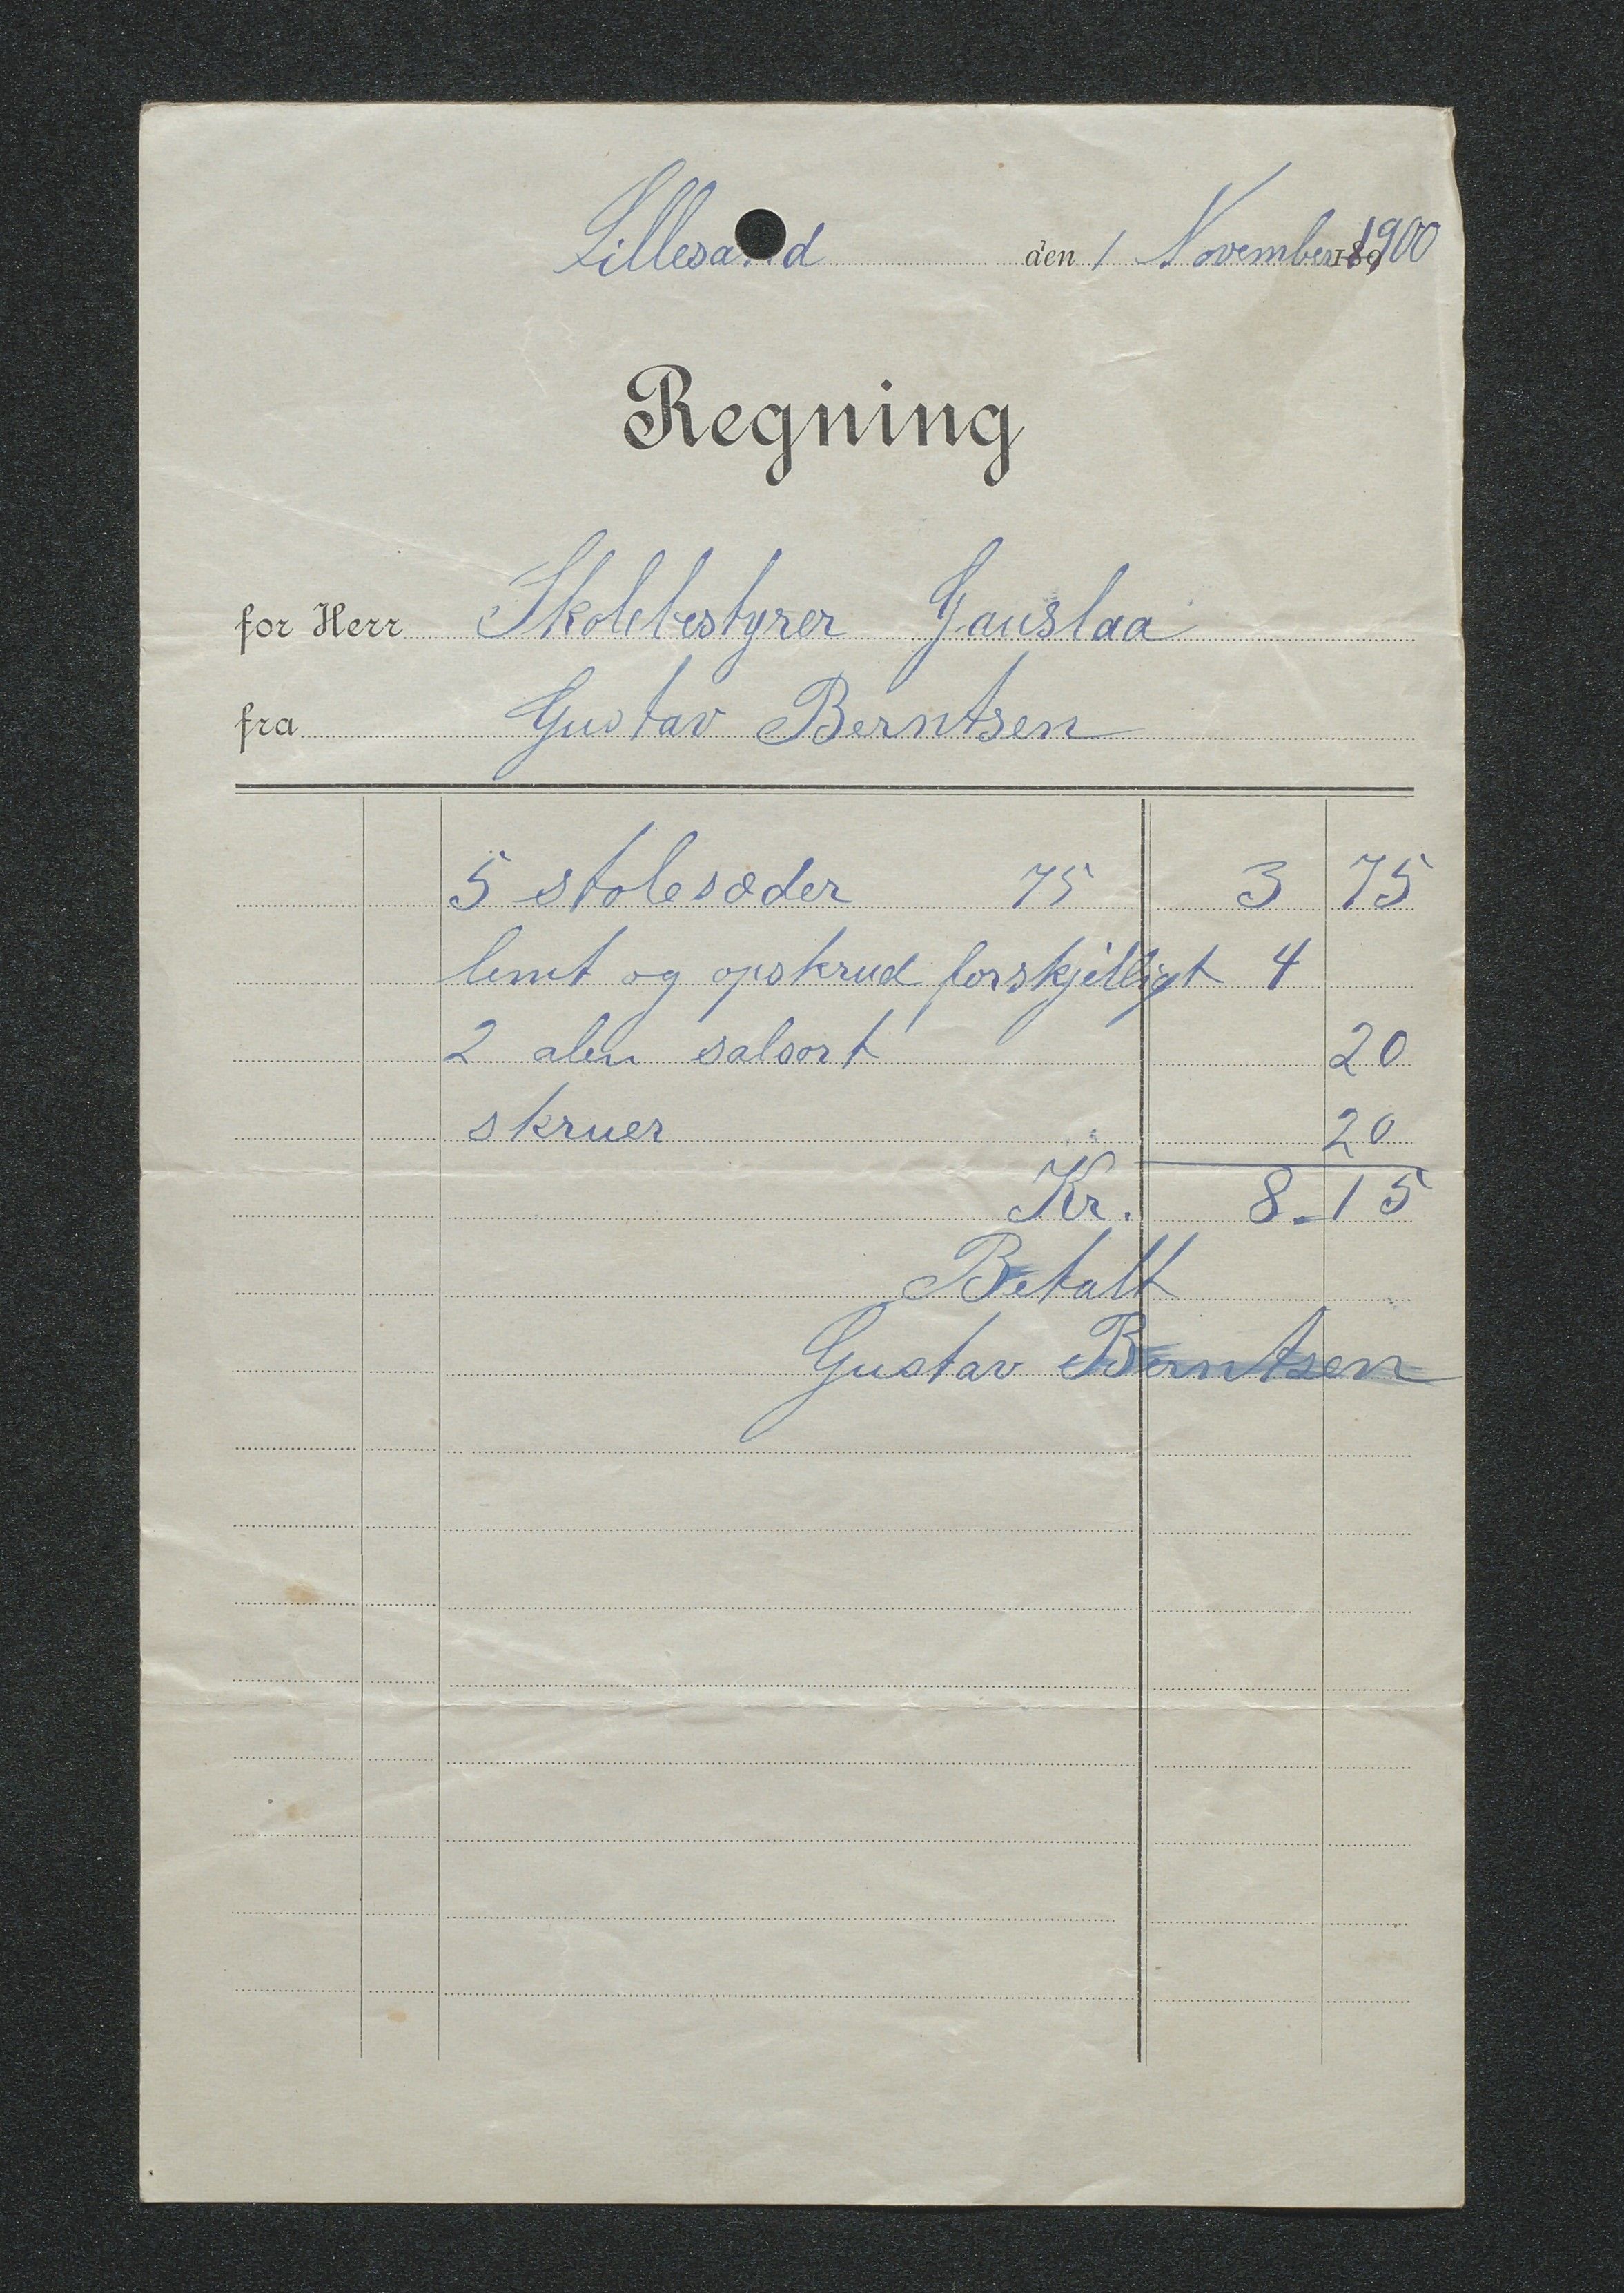 Lillesand den 1 November 1900
Regning
for Herr Skolebestyrer Gauslaa
fra Gustav Berntsen
5 stolesæder 75 3 75
limt og opskrud forskjelligt 4
2 alen 20
skruer 20
Kr. 8.15
Betalt
Gustav Berntsen